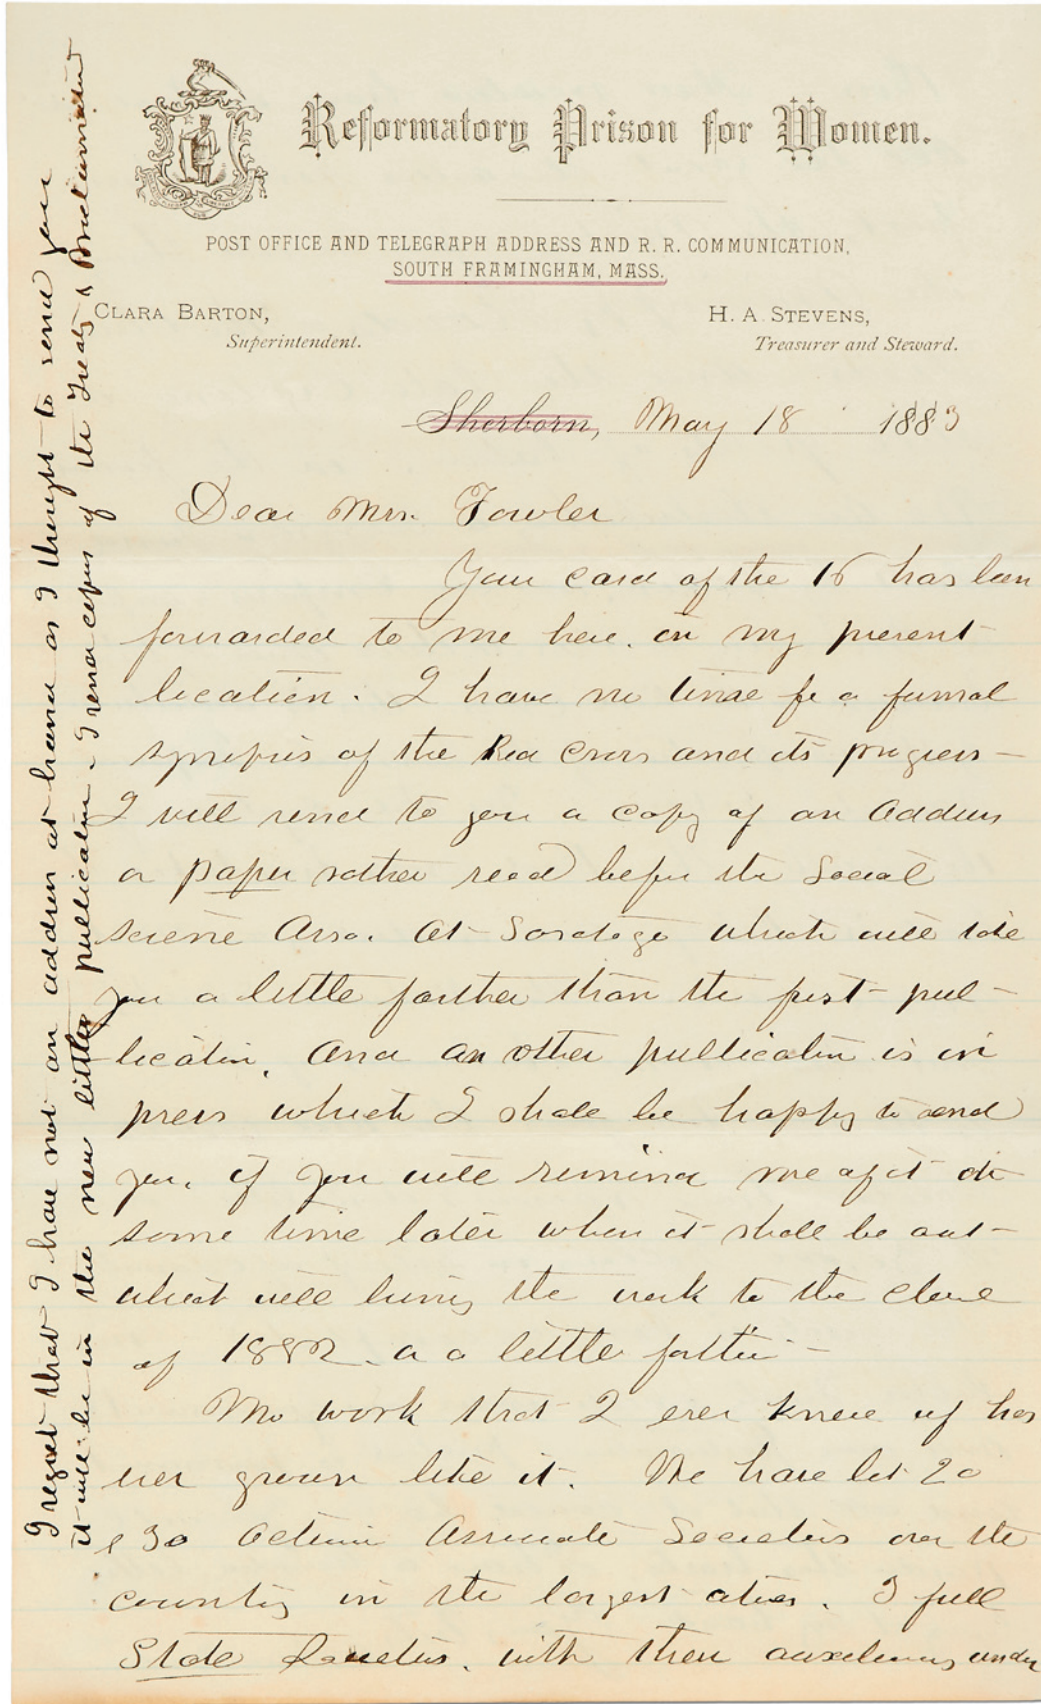 Reformatory Prison for Women.
POST OFFICE AND TELEGRAPH ADDRESS AND R. R. COMMUNICATION,
SOUTH FRAMINGHAM, MASS.
CLARA BARTON,
Superintendent.
H. A. STEVENS,
Treasurer and Steward.
Sherborn, May 18 1883
Dear Mrs. Fowler
Your card of the 16 has been
forwarded to me here. in my present
location. I have no time for a formal
synopsis of the Red Cross and its progress –
I will send to you a copy of an Address
or paper rather read before the Social
science Asso. At Saratoga which will take
you a little farther than the first pub-
lication. And an other publication is in
press which I shall be happy to send
you, if you will remind me of it at
some time later when it shall be out –
which will bring the work to the close
of 1882. or a little farther –
No work that I ever knew of has
ever grown like it. We have bet 20
& 30 Active Associate Societies over the
country in the largest cities. 3 full
State Societies. with their auxiliaries under
I regret that I have not an address at hand as I thought to send you
it will be in the new little publication – I send copies of the Treaty & Proclamation